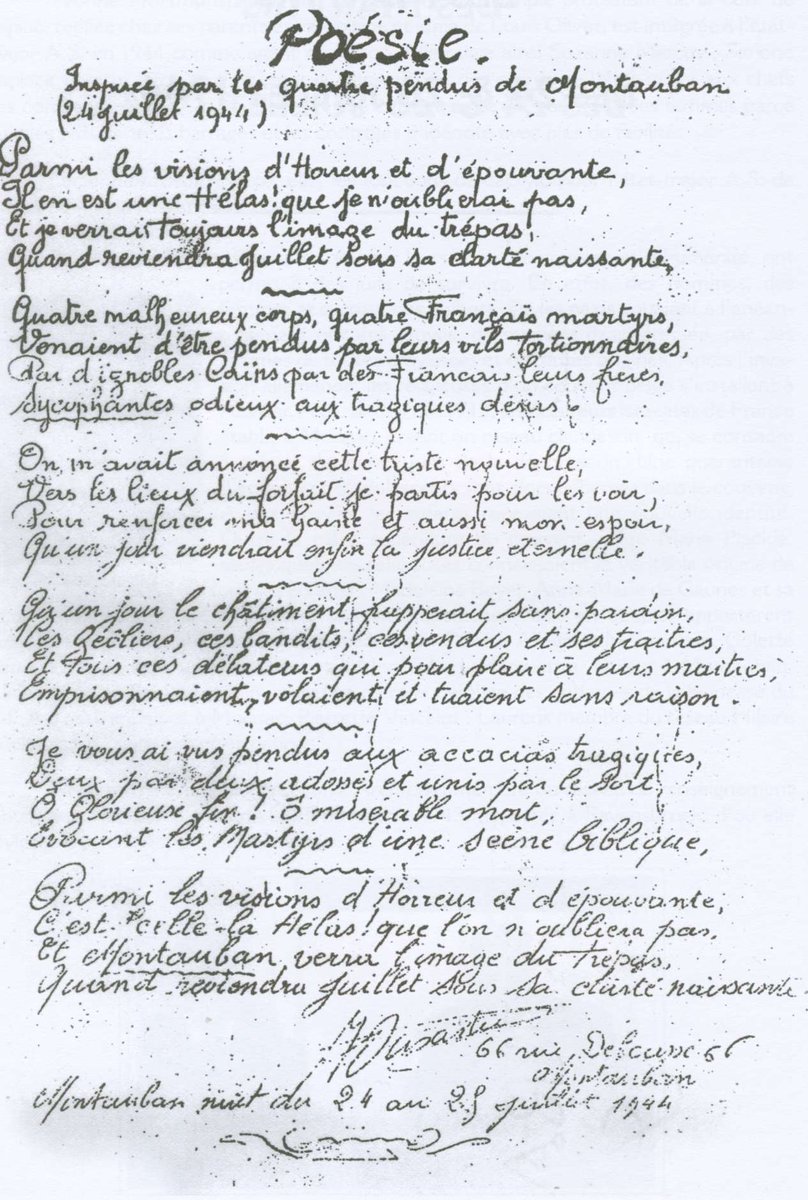 Poésie.
Inspirée par les quatre pendus de Montauban
(24 juillet 1944)
Parmi les visions d'Horreur et d'épouvante,
Il en est une Hélas! que je n'oublierai pas,
Et je verrai Toujours l'image du trépas,
Quand reviendra Juillet sous sa clarté naissante.
Quatre malheureux corps, quatre Français martyrs,
Venaient d'être pendus par leurs vils Tortionnaires,
Par d'ignobles Caïns par des Français leurs frères,
Sycophantes odieux aux tragiques désirs!
On m'avait annoncé cette triste nouvelle,
Vers les lieux du forfait je partis pour les voir,
Pour renforcer ma haine et aussi mon espoir,
Qu'un jour viendrait enfin la justice éternelle.
Qu'un jour le châtiment frapperait sans pardon,
Les Geôliers, ces bandits, ces vendus et ses traitres,
Et Tous ces délateurs qui pour plaire à leurs maitres,
Emprisonnaient, volaient, et tuaient sans raison.
Je vous ai vus pendus aux accacias tragiques,
Deux par deux adossés et unis par le Sort,
Ô Glorieuse fin! ô misérable mort,
Evocant les Martyrs d'une scène biblique,
Parmi les visions d'Horreur et d'épouvante,
C'est celle-là Hélas! que l'on n'oubliera pas.
Et Montauban verra l'image du Trépas,
Quand reviendra Juillet sous sa clarté naissante
66 rue 66
Montauban
Montauban nuit du 24 au 25 Juillet 1944